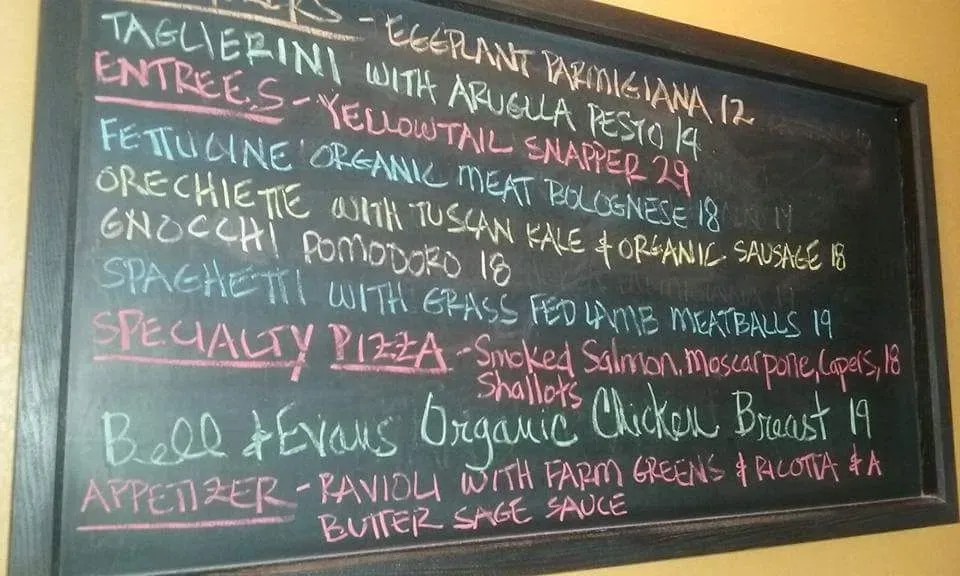 - EGGPLANT PARMIGIANA 12
TAGLIERINI WITH ARUGLLA PESTO 14
ENTREES - YELLOWTAIL SNAPPER 29
FETTUCINE ORGANIC MEAT BOLOGNESE 18
ORECHIETTE WITH TUSCAN KALE & ORGANIC SAUSAGE 18
GNOCCHI POMODORO 18
SPAGHETTI WITH GRASS FED LAMB MEATBALLS 19
SPECIALTY PIZZA - Smoked Salmon, Moscarpone, Capers, 18
Shallots
Bell & Evans Organic Chicken Breast 19
APPETIZER - RAVIOLI WITH FARM GREENS & RICOTTA & A
BUTTER SAGE SAUCE